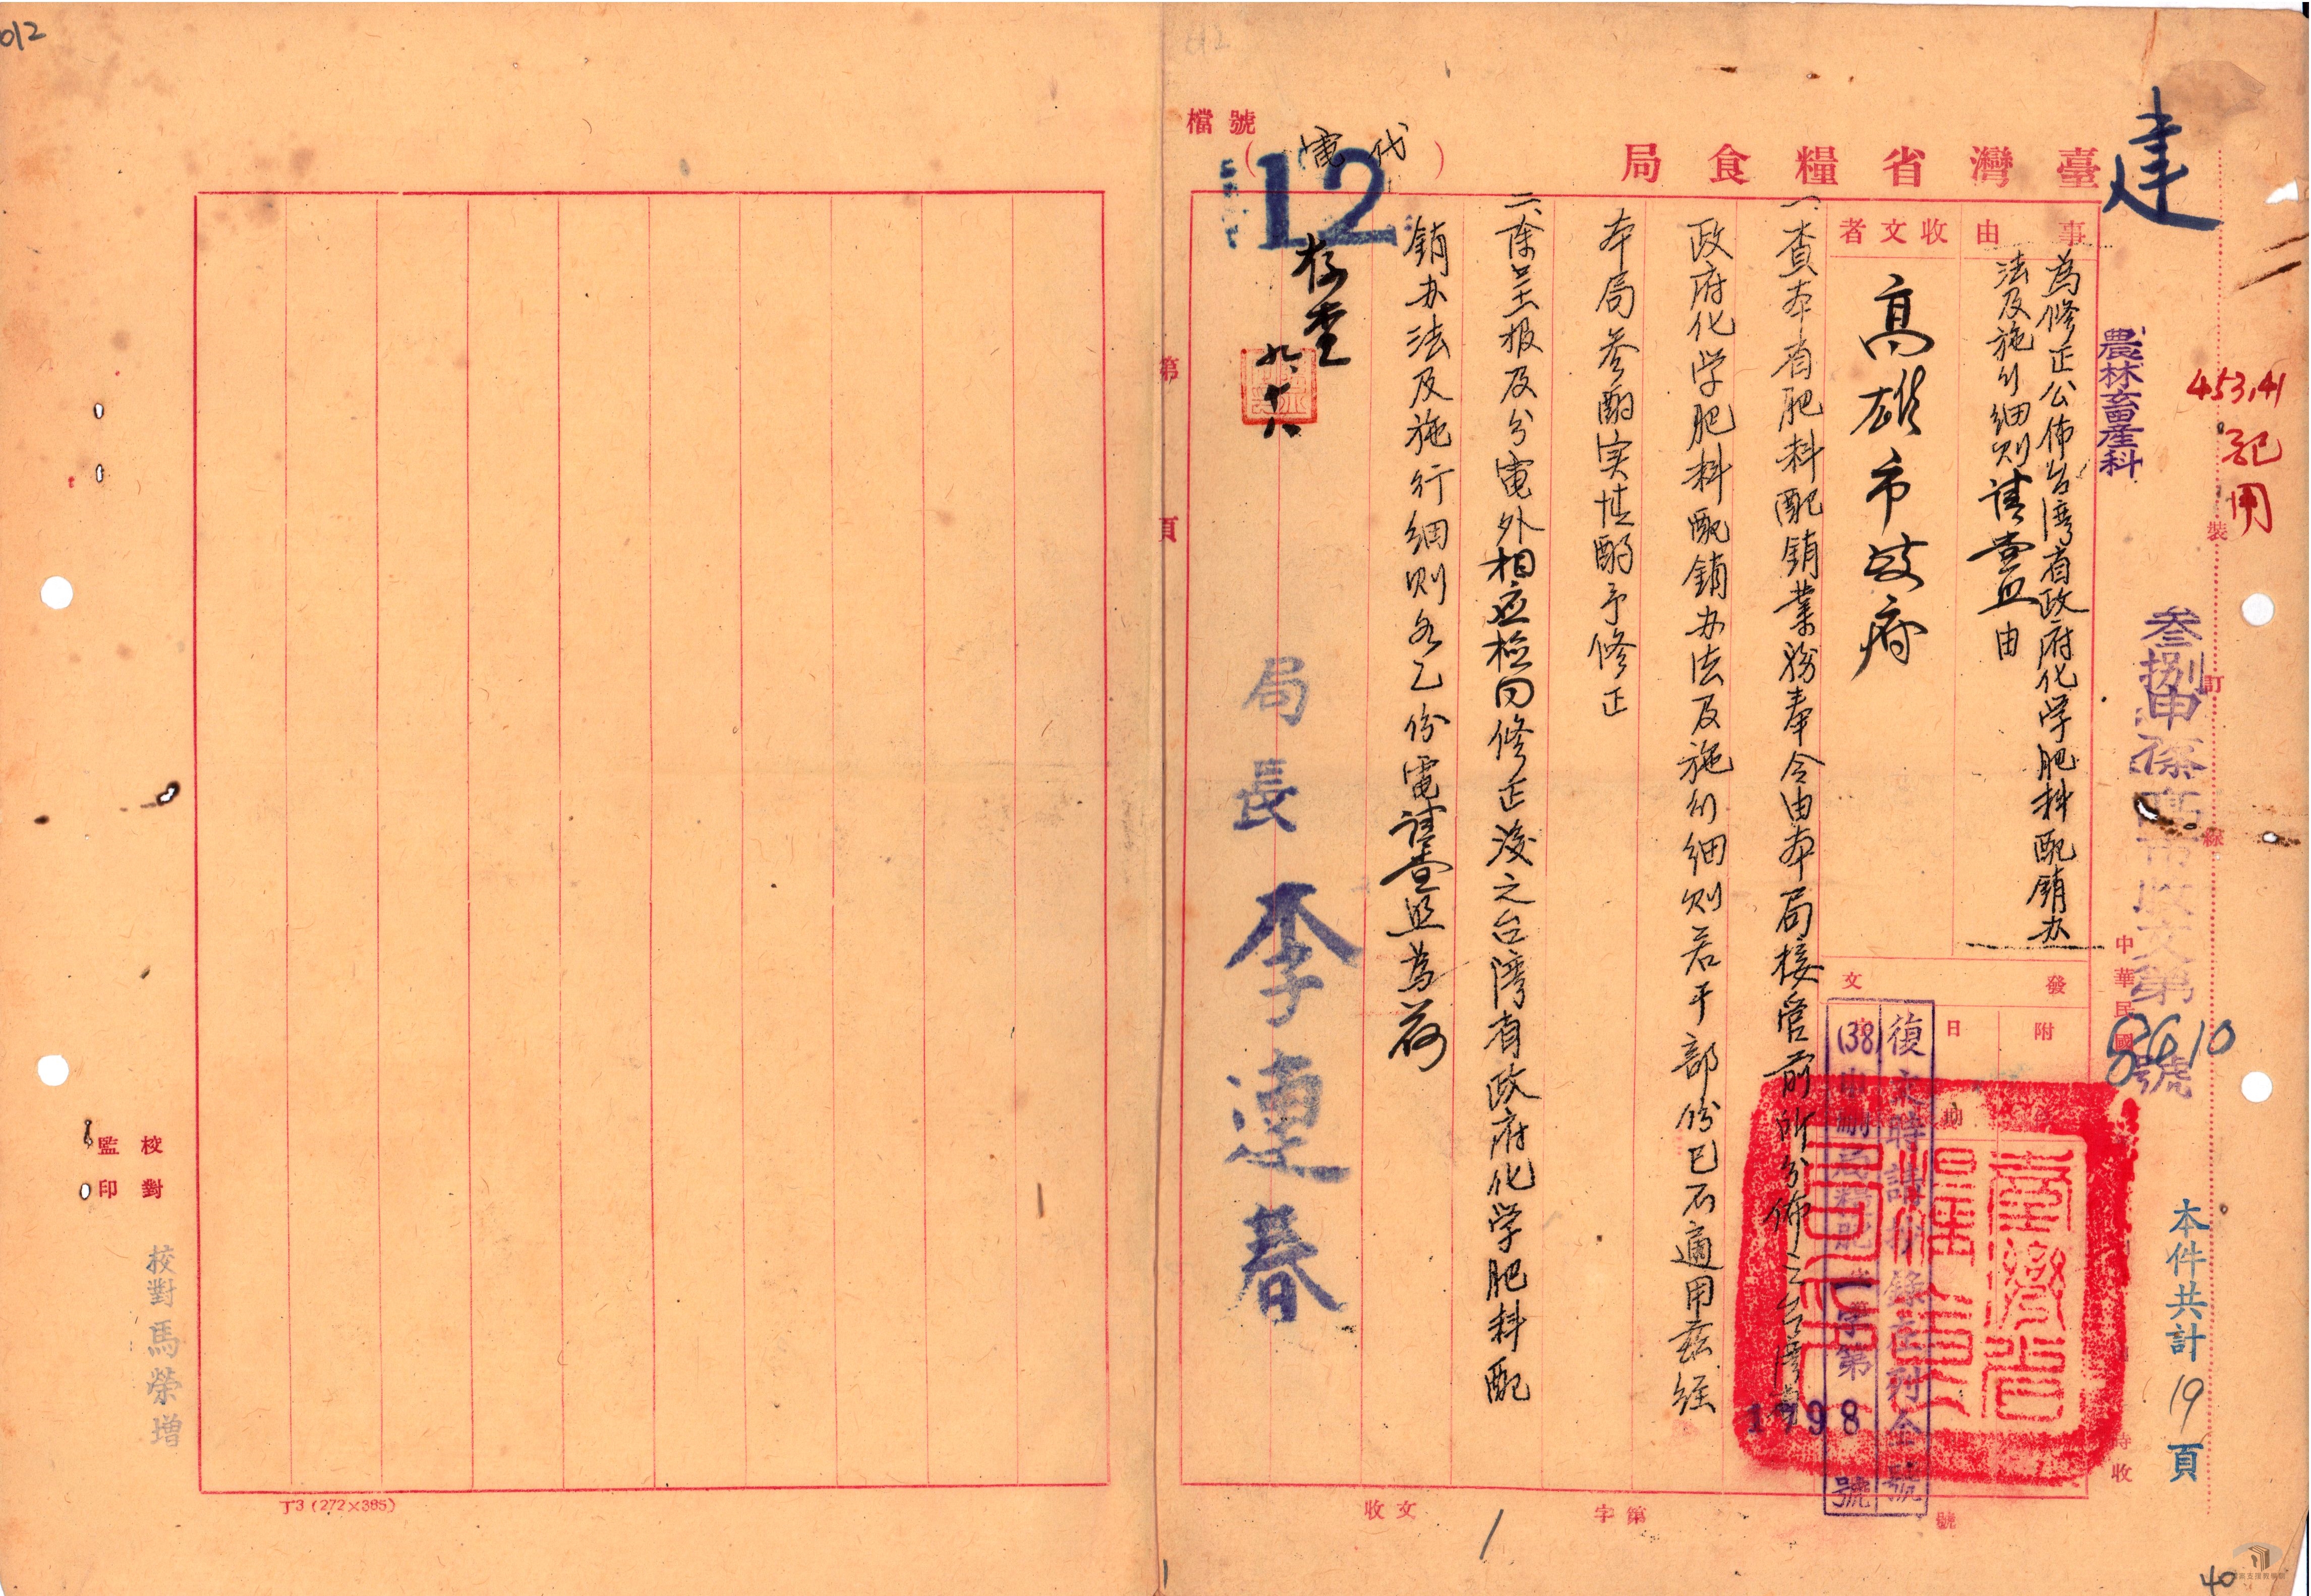 臺灣省糧食局
代電
檔號
12
建
農林畜產科
453.41
記
用
裝
訂
線
叁捌申
市收文第
8610
號
本件共計19頁
事由
為修正公佈台湾省政府化学肥料配銷办
法及施行細则請查照由
收文者
高雄市政府
發文
附
日
中華民國
時收
復文時請抄錄左列全號
(38)
字第
1798
號
臺灣省糧食局印
一、查本省肥料配銷業務奉令由本局接管前所分佈之台湾省
政府化学肥料配銷办法及施行細则若干部份已不適用茲經
本局參酌实情酌予修正
二、除呈报及分電外相应检同修正後之台湾省政府化学肥料配
銷办法及施行細则各乙份電請查照為荷
局長李連春
存查
九、十八
第頁
收文
字第
號
1
40
012
012
監印
校對
校對馬榮增
丁3(272×385)